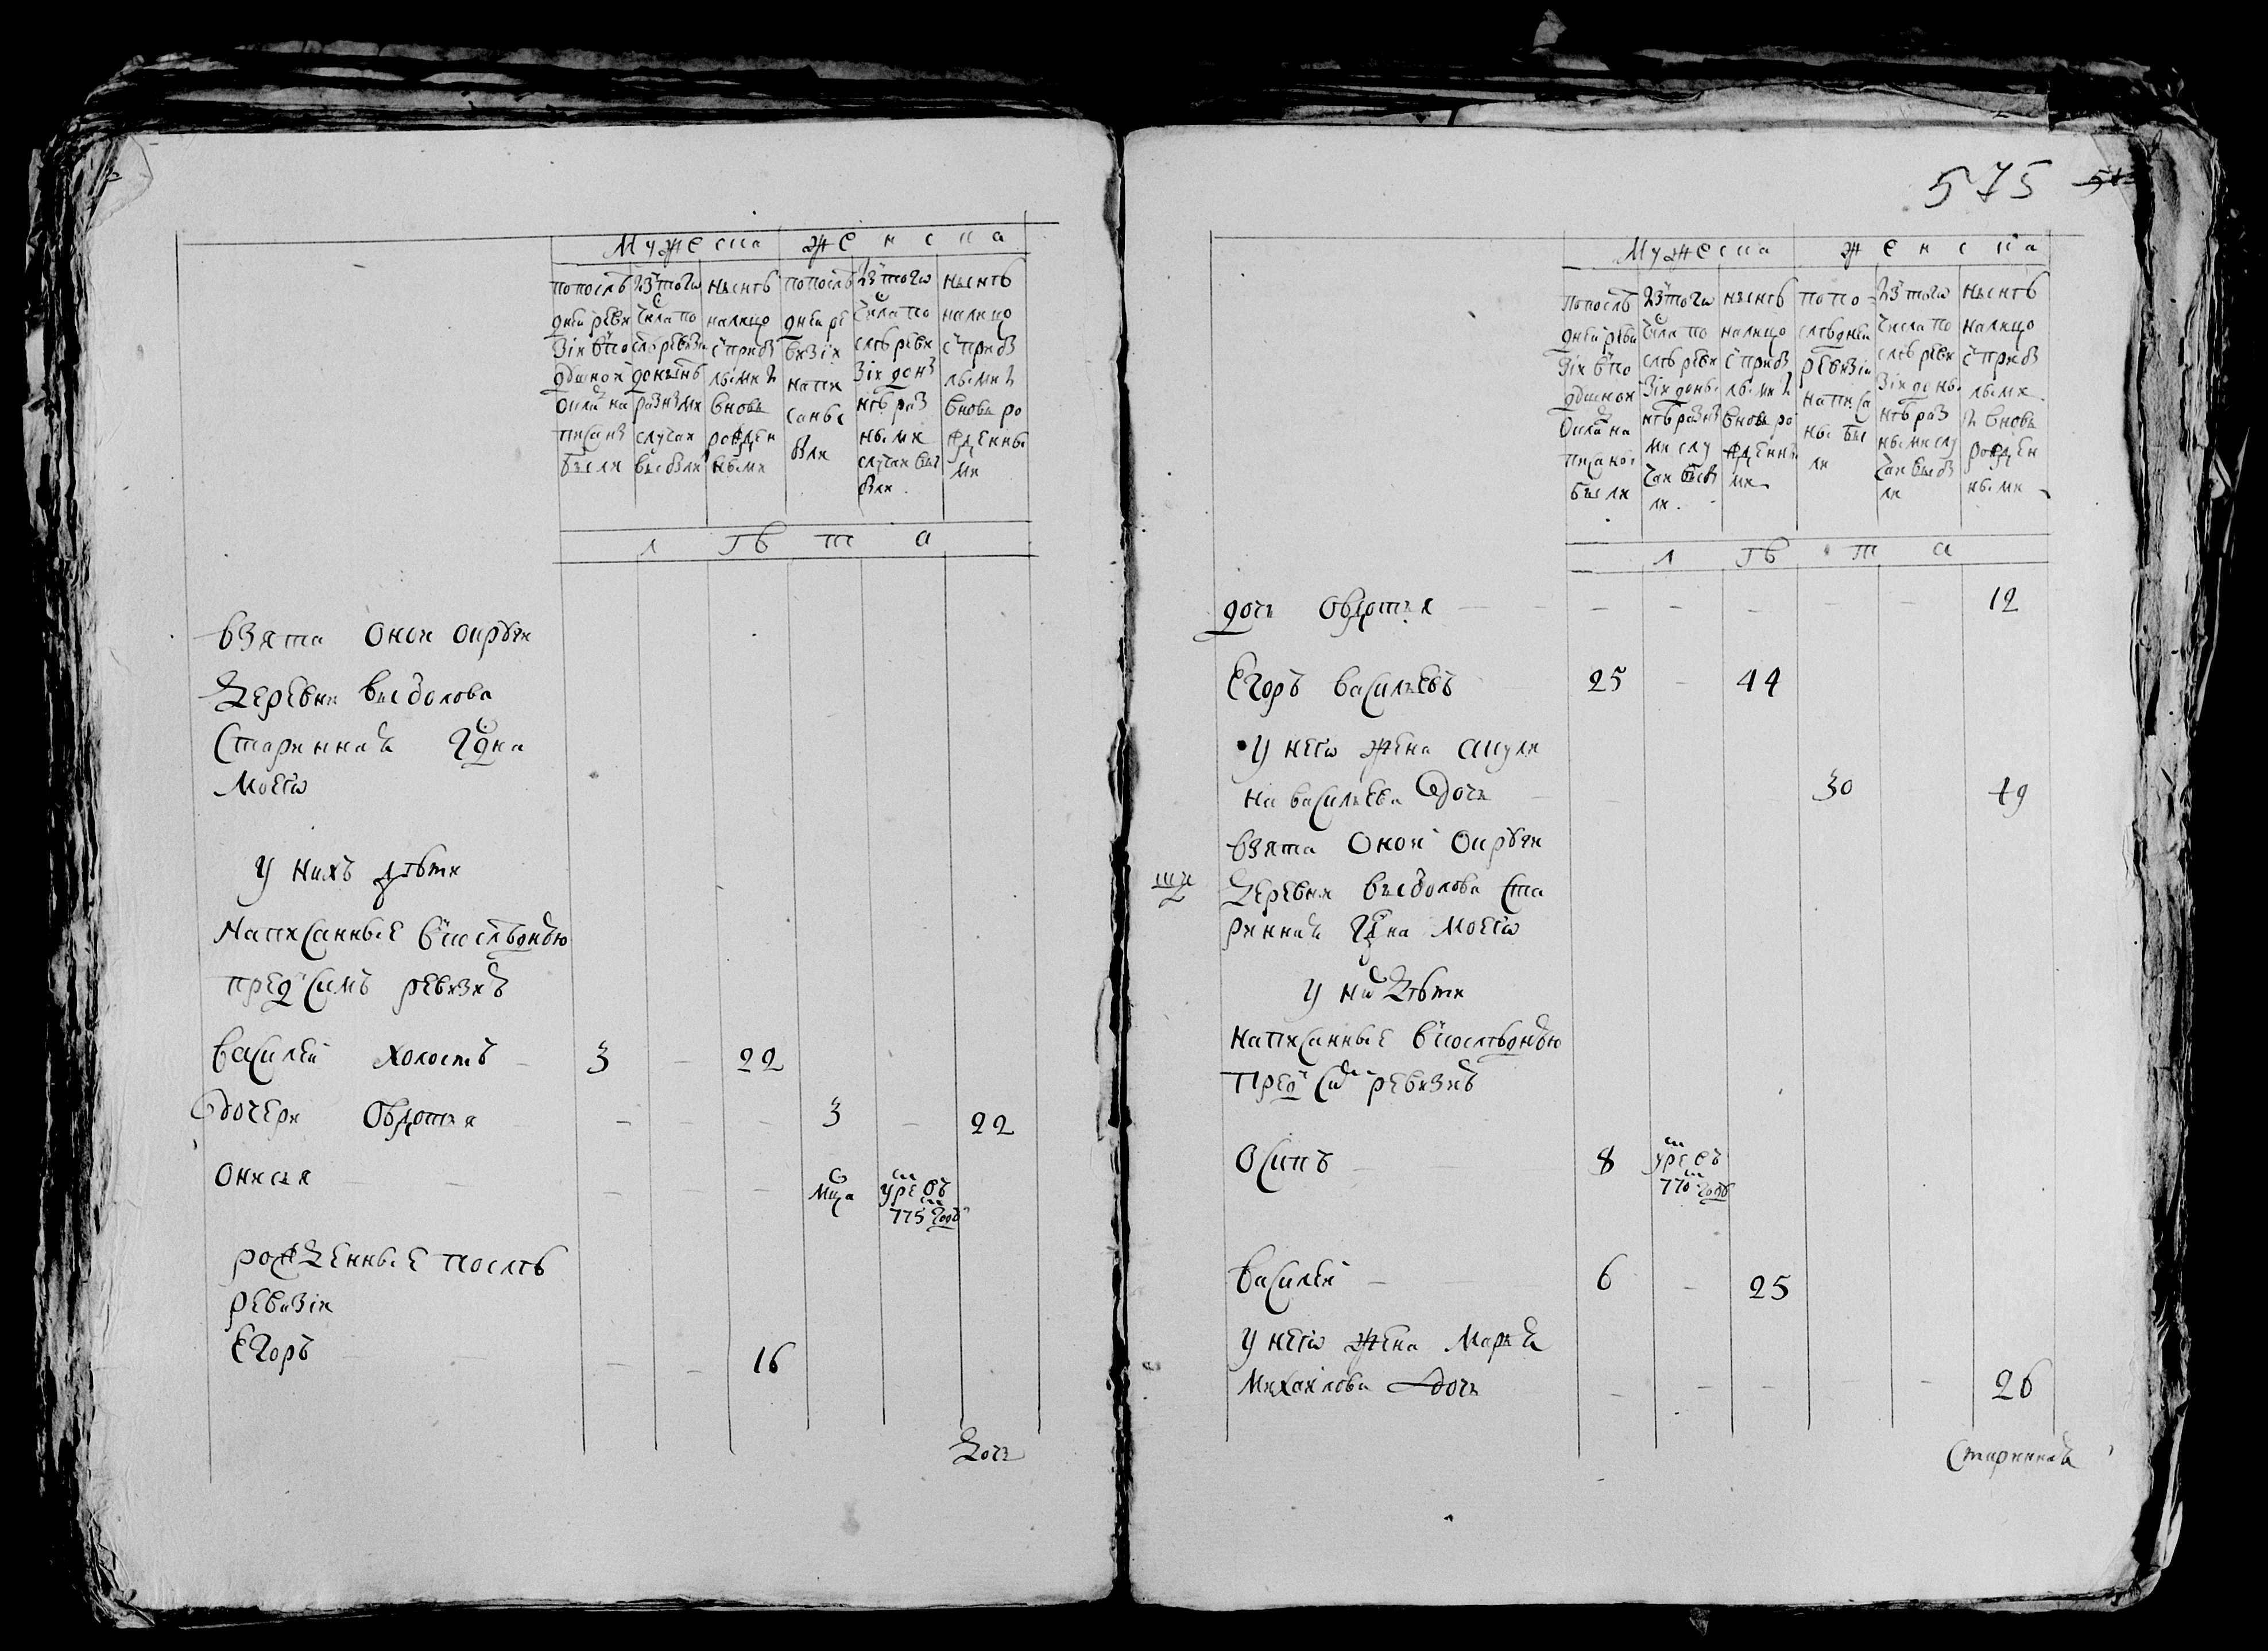 Мужеска
Женска
попослѣ
дней реви
зіи впо
душной
окладъ на
писаны
были
изтого
числа по
слѣ ревизи
донынѣ
разными
случаи
выбыли
нынѣ
налицо
сприбы
лыми и
вновь
рожден
ными
попослѣ
дней ре
визіи
напи
саны
были
изтого
числа по
слѣ реви
зіи доны
нѣ раз
ными
случаи вы
были
нынѣ
налицо
сприбы
лыми и
вновь ро
жденны
ми
лѣта
взята оной округи
деревни выболова
старинная Гдна
моего
у нихъ дѣти
написанные впослѣднюю
предсимъ ревизію
василей холостъ 3 22
дочери овдотья 3 22
онисья умре въ 775 годъ
рожденные послѣ
ревизіи
Егоръ 16
дочь
575
Мужеска
Женска
попослѣ
дней реви
зіи впо
душной
окладъ на
писаны
были
изтого
числа по
слѣ реви
зіи доны
нѣ разны
ми слу
чаи выбы
ли
нынѣ
налицо
сприбы
лыми и
вновь ро
жденны
ми
попо
слѣдней
ревизіи
написа
ны бы
ли
изтого
числа по
слѣ реви
зіи доны
нѣ раз
ными слу
чаи выбы
ли
нынѣ
налицо
сприбы
лыми
и вновь
рожден
ными
лѣта
дочь овдотья 12
Егоръ васильевъ 25 44
у него жена акули
на васильева дочь 30 49
взята оной округи
деревни выболова ста
ринная Гдна моего
у них дѣти
написанные впослѣднюю
пред сим ревизію
осипъ 8 умре въ 770 годъ
василей 6 25
у него жена марья
михайлова дочь 26
старинная